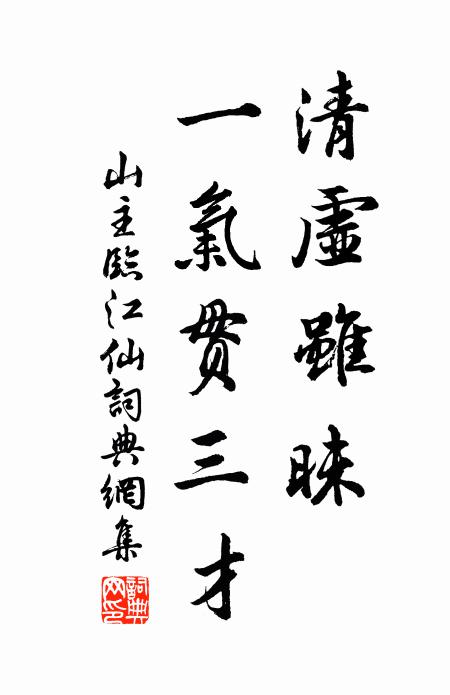 清虛雖昧
一氣貫三才
山主臨江仙詞典網集
詞典网印